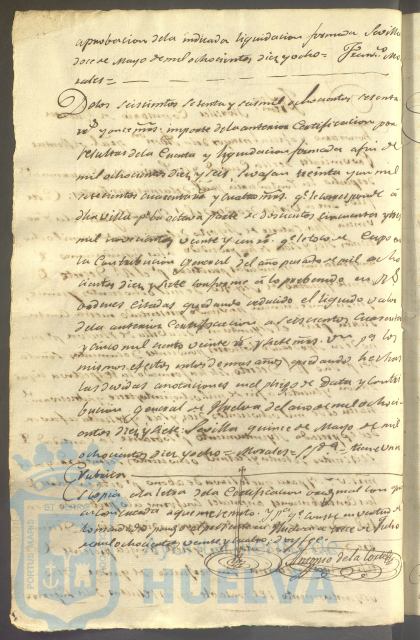 aprobacion dela indicada liquidacion formada Sevilla
doce de Mayo de mil ochocientos diez y ocho= Fran.co Mo-
rales=
Delos seiscientos setenta y seis mil ochocientos sesenta
r.s y once m.s importe dela anterior Certificacion por
resultas dela Cuenta y liquidacion formada a fin de
mil ochocientos diez y seis, se vajan treinta y un mil
setecientos cuarenta r.s y cuatro m.s q.e le corresponde a
dha Villa p.r la octava parte de doscientos cincuenta y tres
mil novecientos veinte y un r.s q.e le toco de Cupo en
la Contribucion General del año pasado de mil ocho-
cientos diez y siete conforme a lo prebenido en R.s
ordenes citadas quedando reducido el liquido valor
dela anterior Certificacion a seiscientos cuarenta
y cinco mil ciento veinte r.s y siete m.s v.n p.a los
mismos efectos entodos mas años quedando hechas
las devidas anotaciones en el pliego de Data y Contri-
bucion General de Huelva del año de mil ochoci-
entos diez y siete. Sevilla quince de Mayo de mil
ochocientos diez y ocho= Morales= tiene una
Rubrica
Es copia ala letra dela Certificacion original con q.e
y p.a q.e conste en virtud de
lo mandado pongo el presente en Huelva a once de Julio
de mil ochocientos veinte y cuatro, doy fee=
Antonio dela Corte
PORTUS MARIS
HUELVA